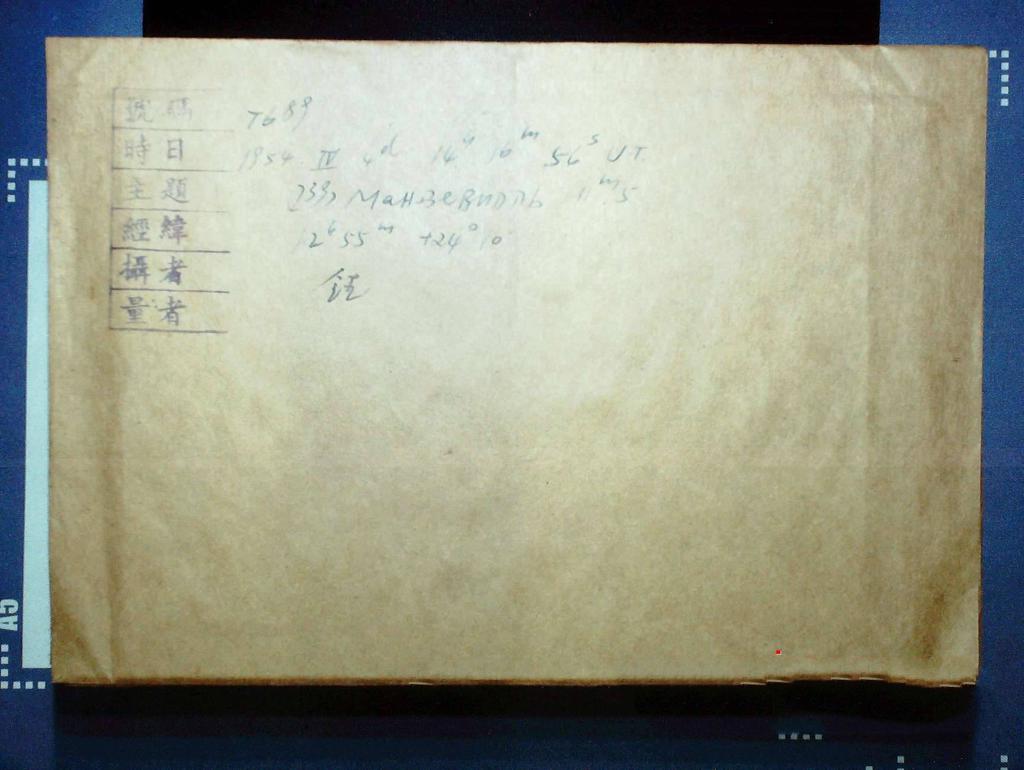 號碼 T689
時日 1954 IV 4d 14h 16m 56s UT.
主題 МанзеВипль 11m.5
經緯 12h 55m +24° 10
攝者
量者
A5